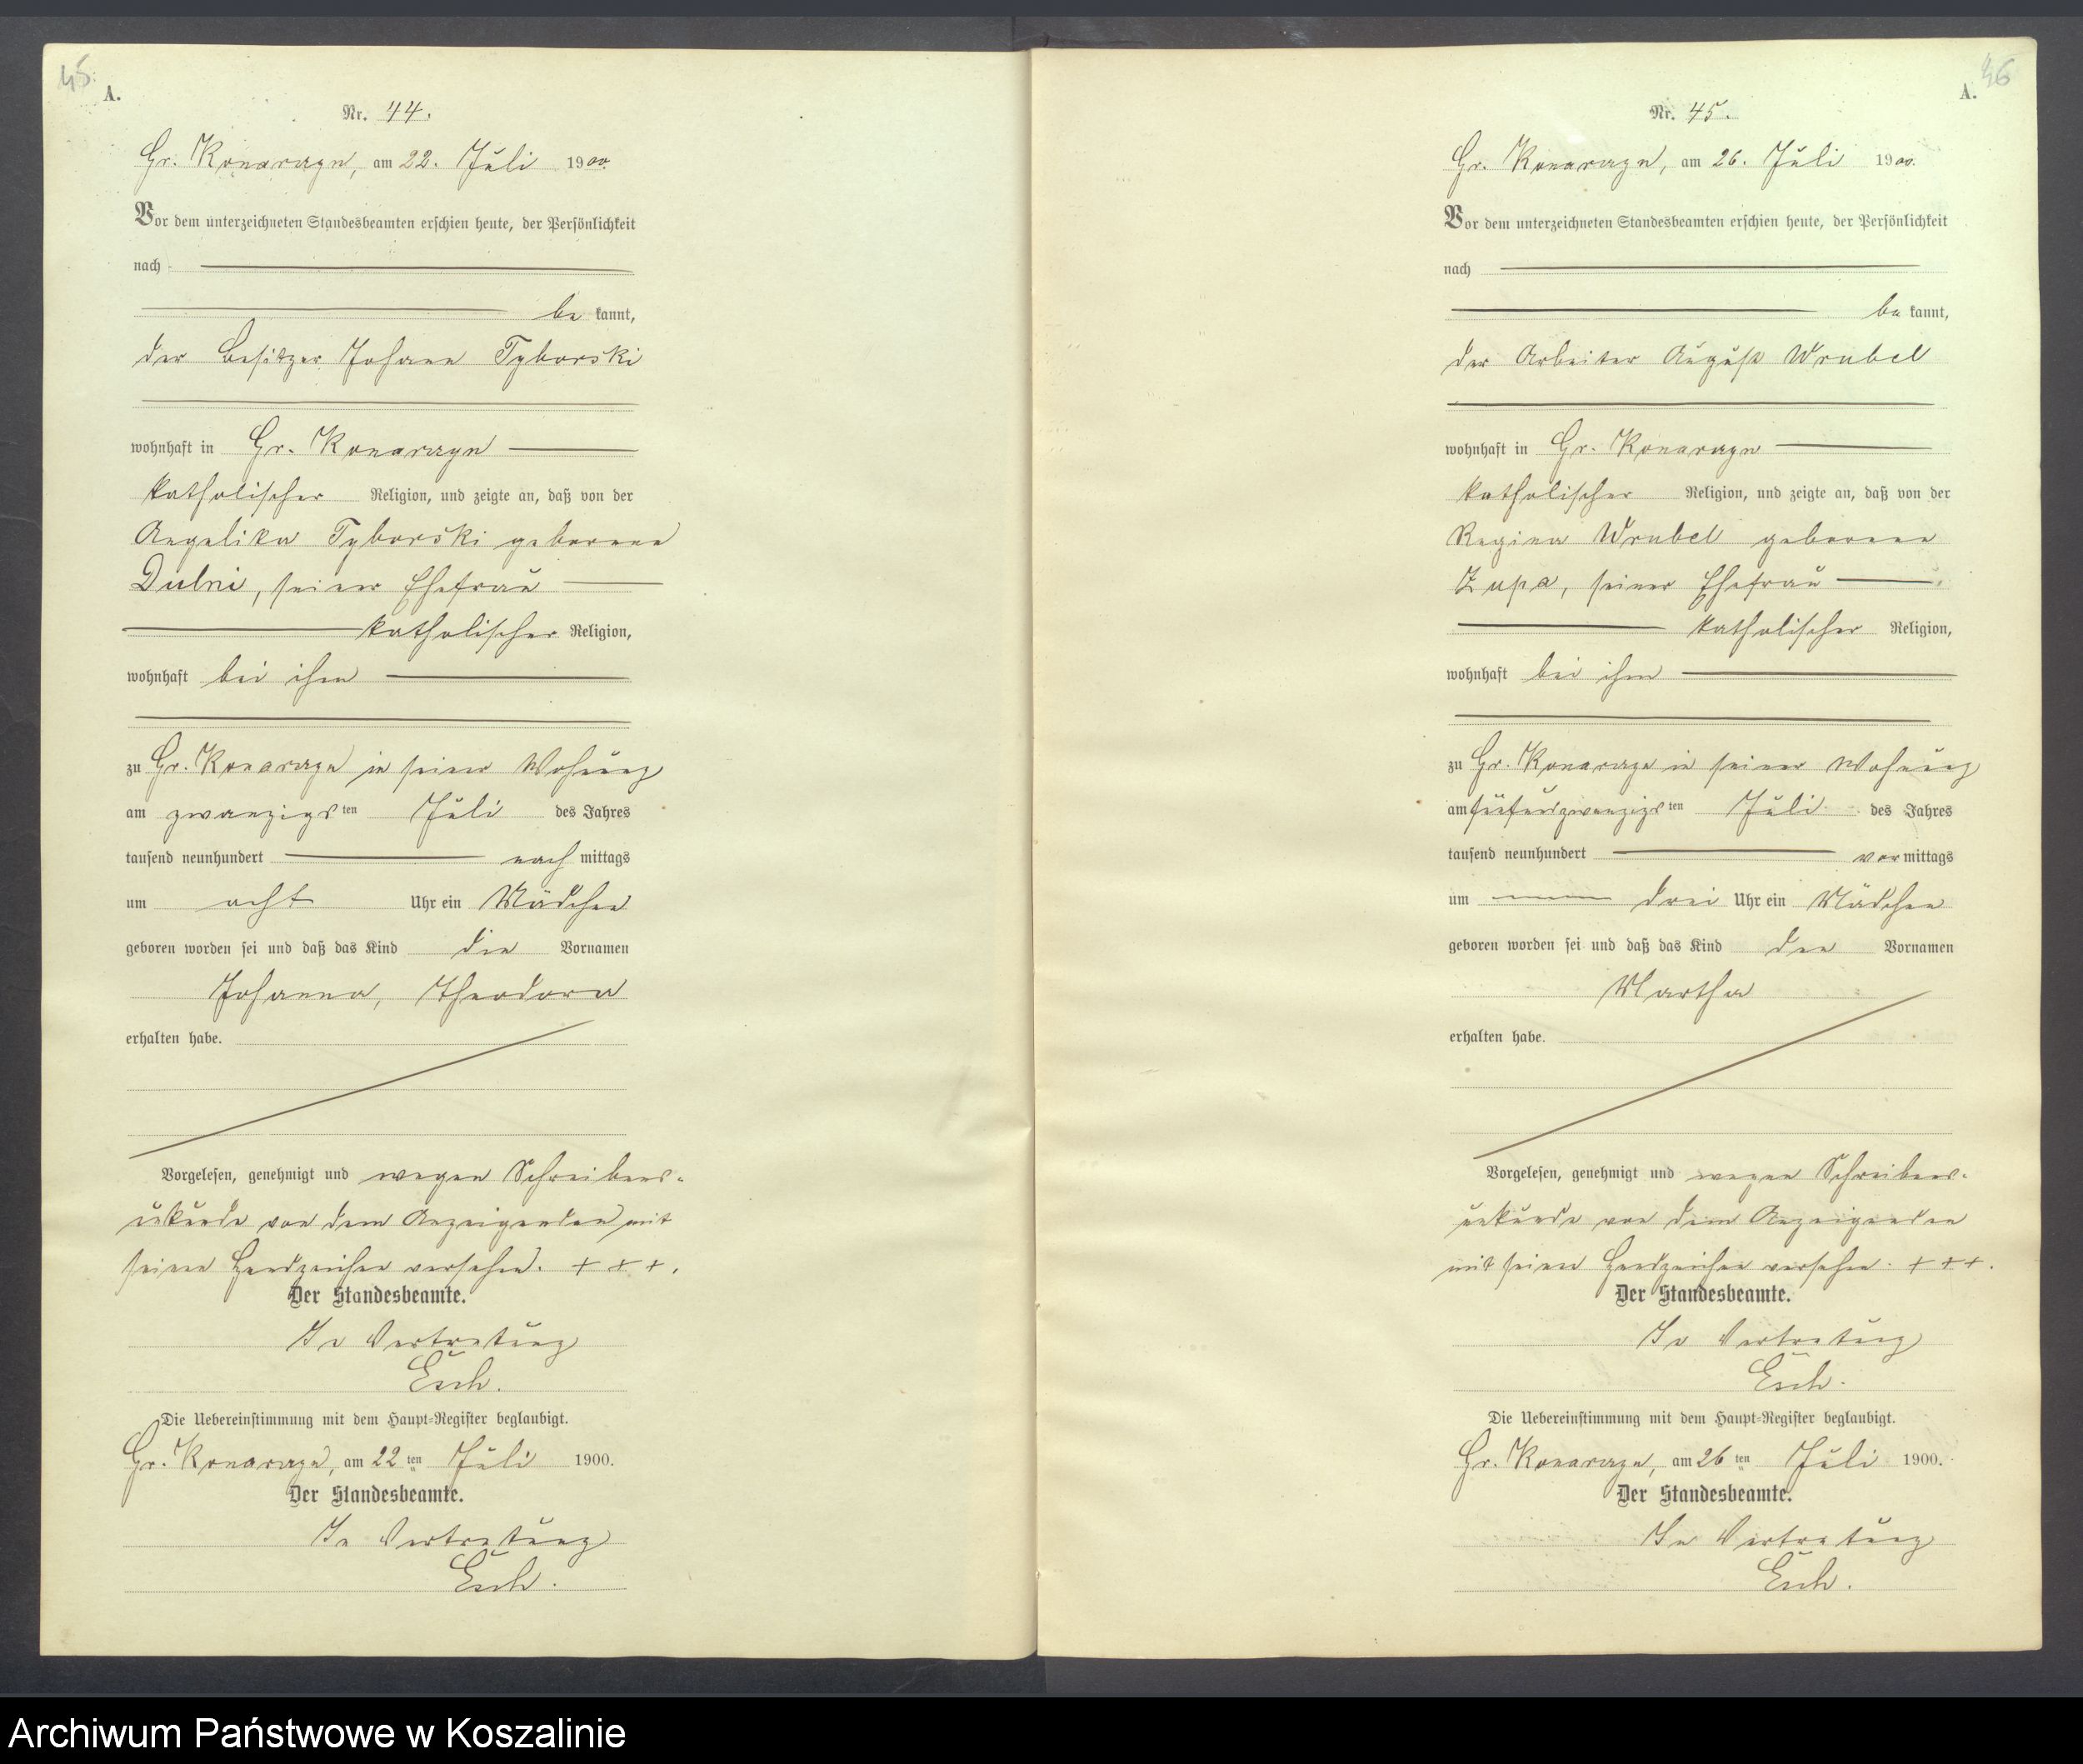 45.
A.
Nr. 44.
Gr. Konarczyn, am 22. Juli 1900.
Vor dem unterzeichneten Standesbeamten erschien heute, der Persönlichkeit
nach
be kannt,
der Besitzer Johann Tyborski
wohnhaft in Gr. Konarczyn
katholischer Religion, und zeigte an, daß von der
Angelika Tyborski geborene
Dulni, seiner Ehefrau
katholischer Religion,
wohnhaft bei ihm
zu Gr. Konarczyn in seiner Wohnung
am zwanzigsten Juli des Jahres
tausend neunhundert nach mittags
um acht Uhr ein Mädchen
geboren worden sei und daß das Kind die Vornamen
Johanna, Theodora
erhalten habe.
Vorgelesen, genehmigt und wegen Schreibens-
unkunde von dem Anzeigenden mit
seinen Handzeichen versehen. + + +.
Der Standesbeamte.
In Vertretung
Esch.
Die Uebereinstimmung mit dem Haupt-Register beglaubigt.
Gr. Konarczyn, am 22 ten Juli 1900.
Der Standesbeamte.
In Vertretung
Esch.
46
A.
Nr. 45.
Gr. Konarczyn, am 26. Juli 1900.
Vor dem unterzeichneten Standesbeamten erschien heute, der Persönlichkeit
nach
be kannt,
der Arbeiter August Wrubel
wohnhaft in Gr. Konarczyn
katholischer Religion, und zeigte an, daß von der
Regina Wrubel geborene
Zupa, seiner Ehefrau
katholischer Religion,
wohnhaft bei ihm
zu Gr. Konarczyn in seiner Wohnung
am fünfundzwanzigsten Juli des Jahres
tausend neunhundert vor mittags
um drei Uhr ein Mädchen
geboren worden sei und daß das Kind den Vornamen
Martha
erhalten habe.
Vorgelesen, genehmigt und wegen Schreibens-
unkunde von dem Anzeigenden
mit seinen Handzeichen versehen. + + +.
Der Standesbeamte.
In Vertretung
Esch.
Die Uebereinstimmung mit dem Haupt-Register beglaubigt.
Gr. Konarczyn, am 26 ten Juli 1900.
Der Standesbeamte.
In Vertretung
Esch.
Archiwum Państwowe w Koszalinie